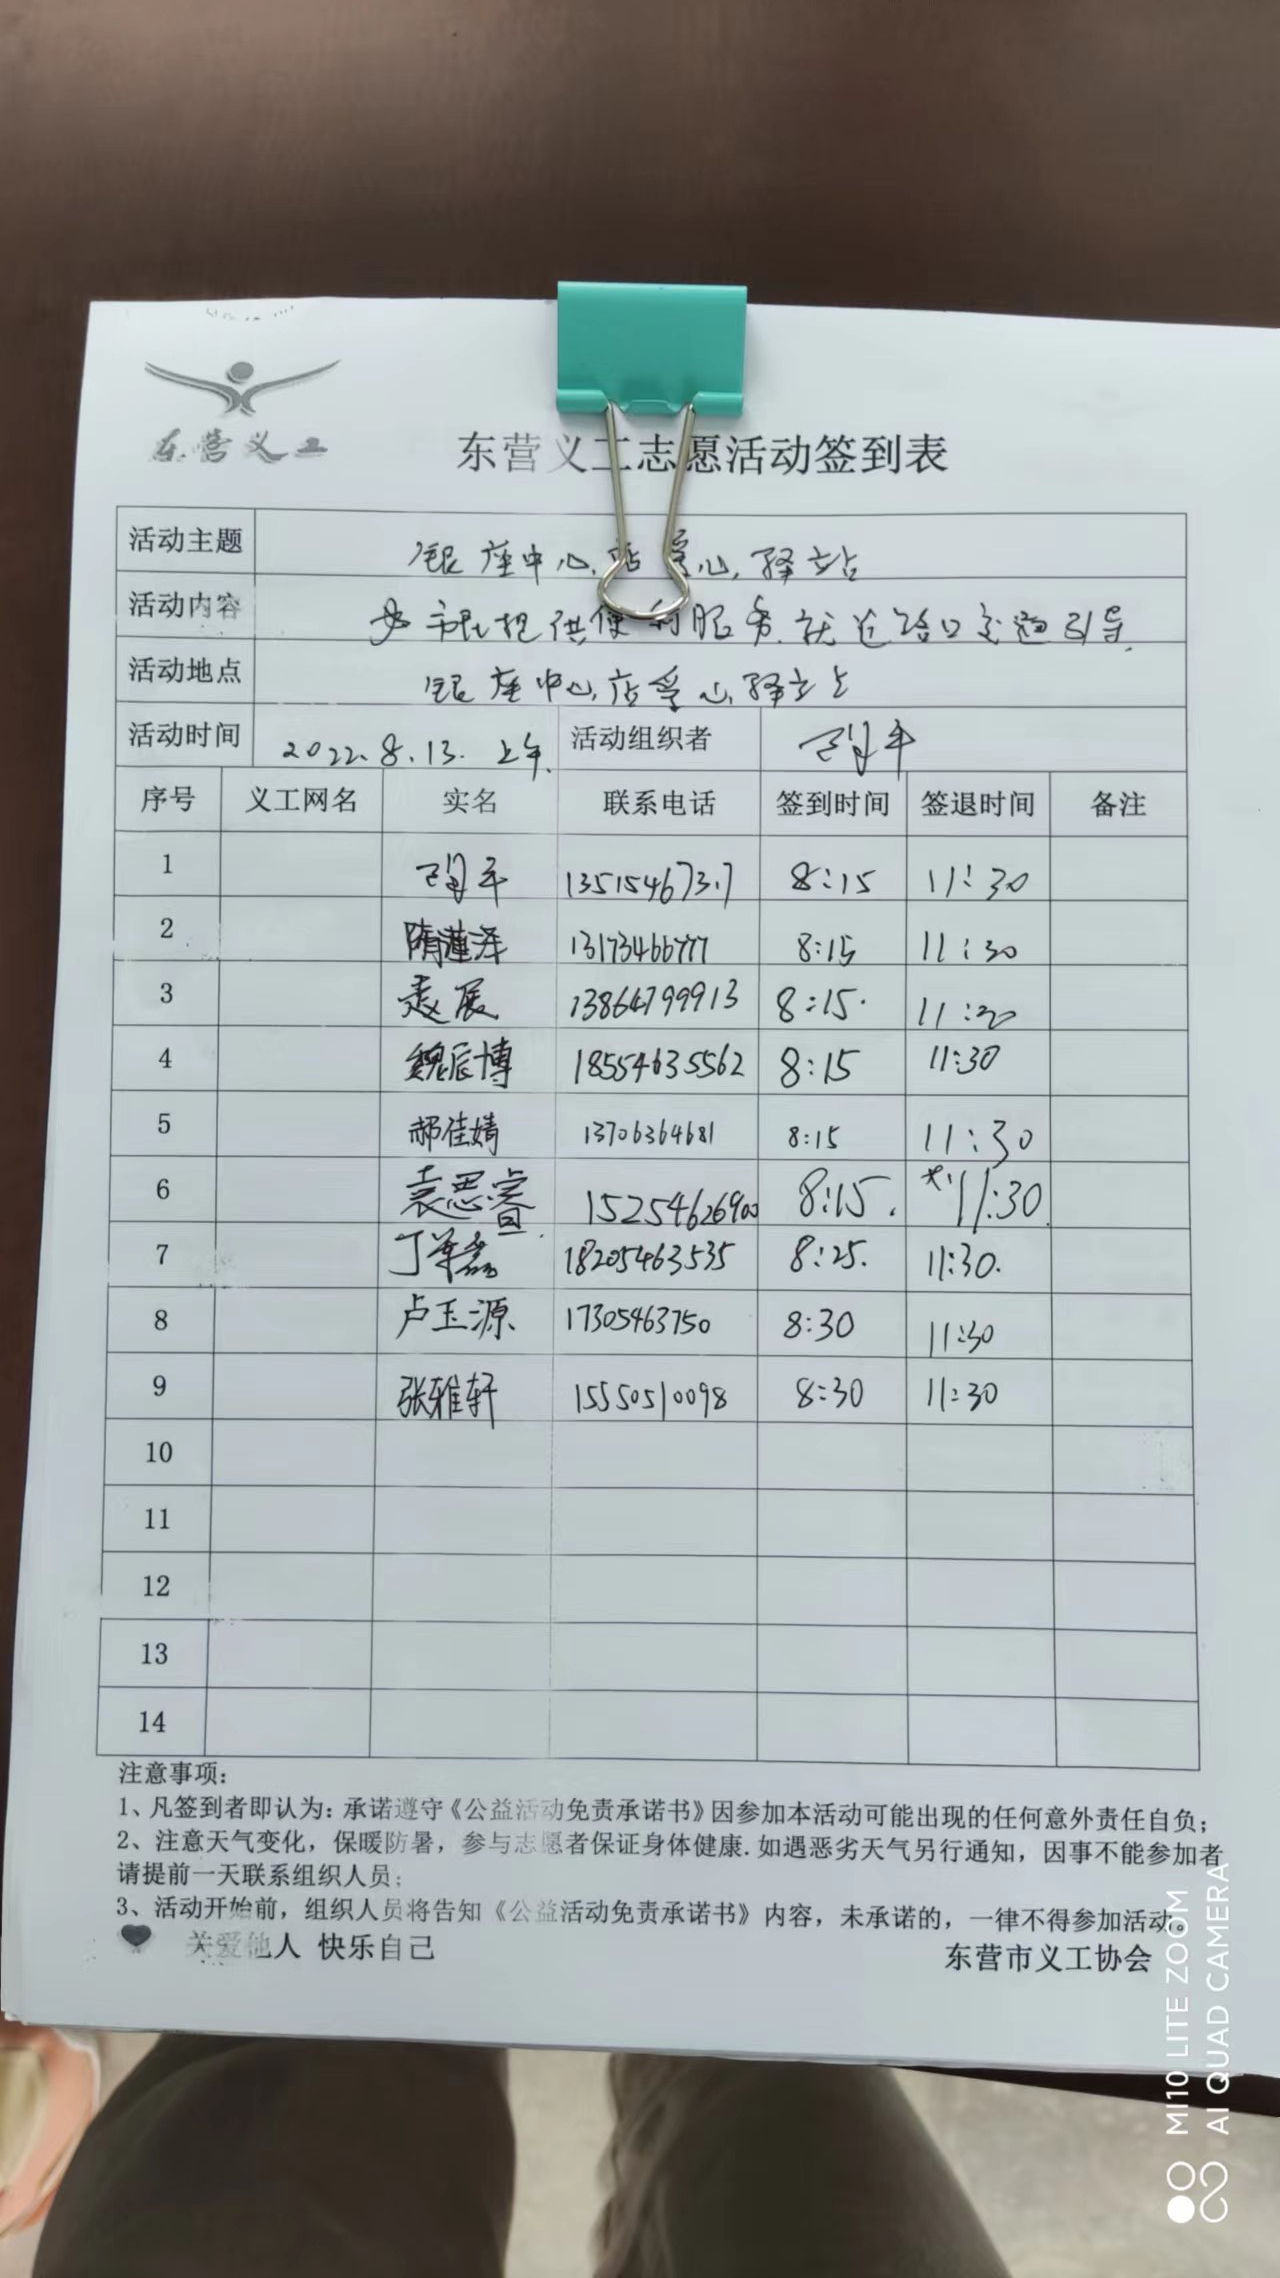 东营义工
东营义工志愿活动签到表
活动主题 银座中心店爱心驿站
活动内容 为市民提供便利服务.就近路口交通引导.
活动地点 银座中心店爱心驿站
活动时间 2022.8.13. 上午. 活动组织者
序号 义工网名 实名 联系电话 签到时间 签退时间 备注
1 8:15 11:30
2 隋莲泽 13173466777 8:15 11:30
3 袁展 13864799913 8:15. 11:20
4 魏辰博 18554635562 8:15 11:30
5 郝佳婧 13706364681 8:15 11:30
6 袁思睿. 15254626900 8:15. 11:30.
7 18205463535 8:25. 11:30.
8 卢玉源. 17305463750 8:30 11:30
9 张雅轩 15550510098 8:30 11:30
10
11
12
13
14
注意事项：
1、凡签到者即认为：承诺遵守《公益活动免责承诺书》因参加本活动可能出现的任何意外责任自负；
2、注意天气变化，保暖防暑，参与志愿者保证身体健康.如遇恶劣天气另行通知，因事不能参加者
请提前一天联系组织人员；
3、活动开始前，组织人员将告知《公益活动免责承诺书》内容，未承诺的，一律不得参加活动。
关爱他人 快乐自己
东营市义工协会
MI10 LITE ZOOM
AI QUAD CAMERA